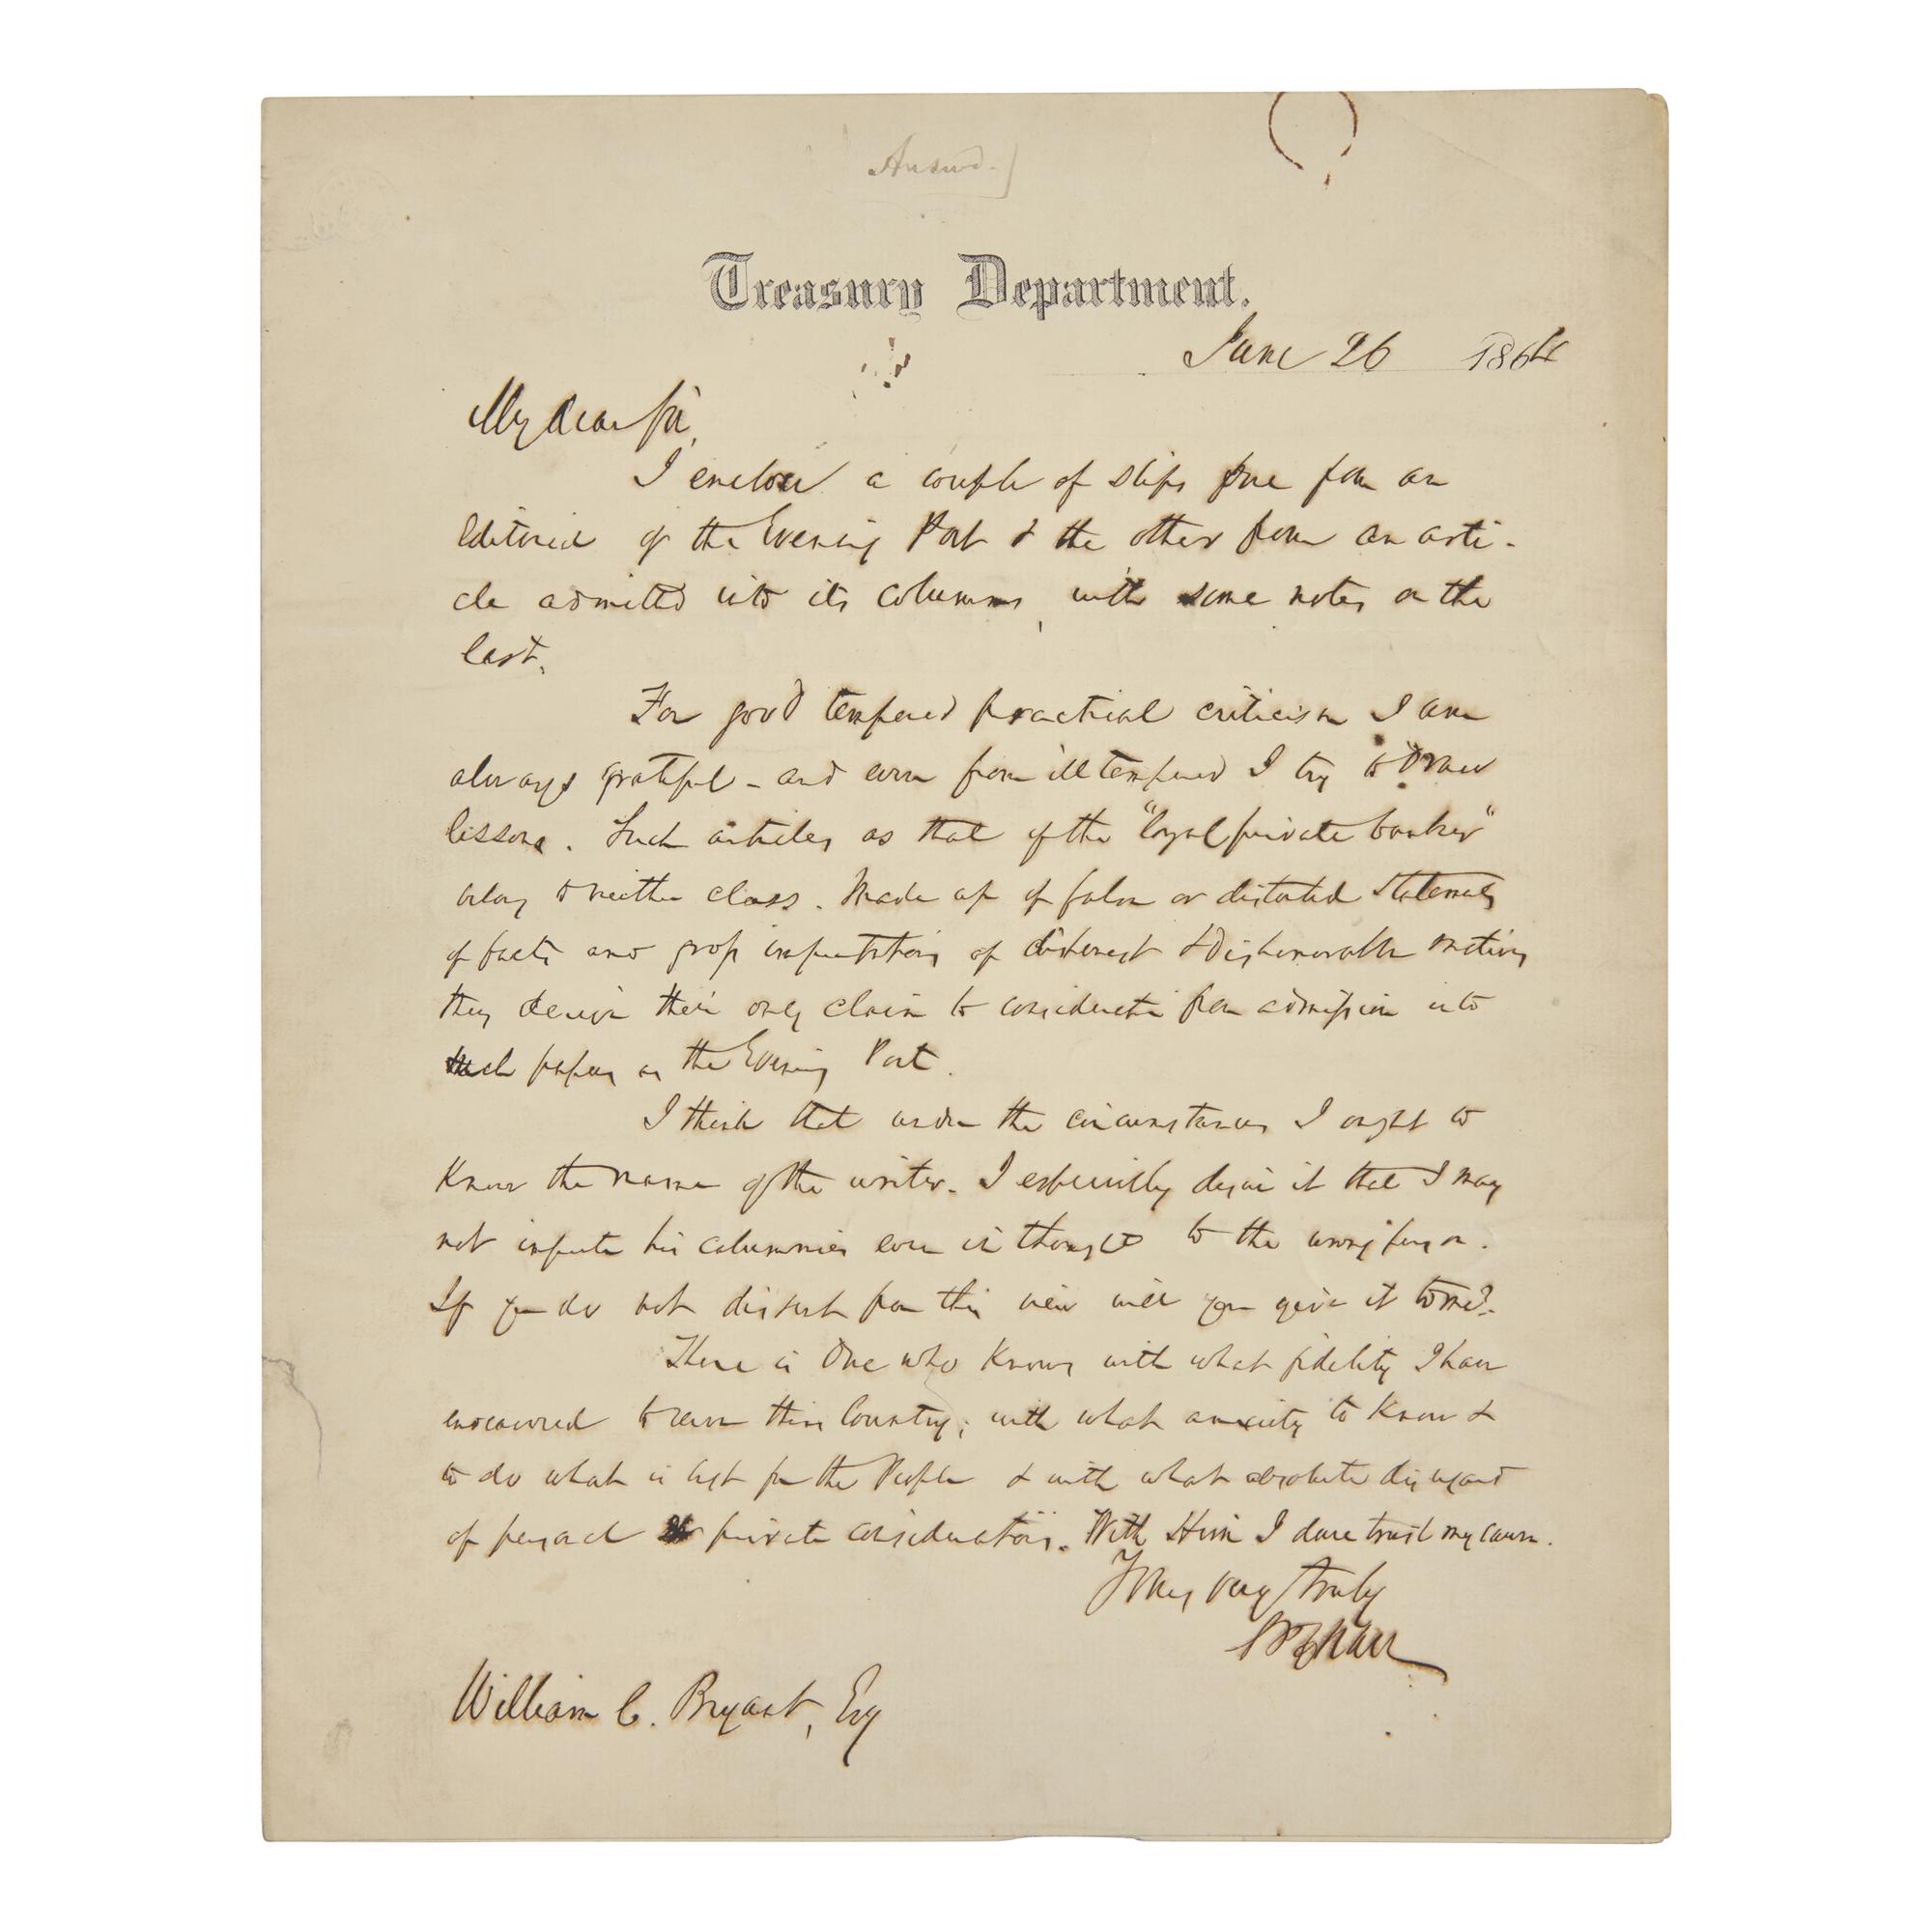 Answd.
Treasury Department.
June 26 1864
My dear Sir,
I enclose a couple of slips one from an
Editorial of the Evening Post & the other from an arti-
cle admitted into its columns, with some notes on the
last.
For good tempered practical criticism I am
always grateful - and even from ill tempered I try to draw
lessons. Such articles as that of the "loyal private banker"
belong to neither class. Made up of false or distorted statements
of facts and gross imputations of dishonest & dishonorable motives
they derive their only claim to consideration from admission into
such papers as the Evening Post.
I think that under the circumstances I ought to
know the name of the writer. I especially desire it that I may
not impute his calumnies even in thought to the wrong person.
If you do not dissent from this view will you give it to me?
There is One who knows with what fidelity I have
endeavored to serve this Country; with what anxiety to know &
to do what is best for the People & with what absolute disregard
of personal or private considerations. With Him I dare trust my cause.
Yours very truly
SPChase
William C. Bryant, Esq